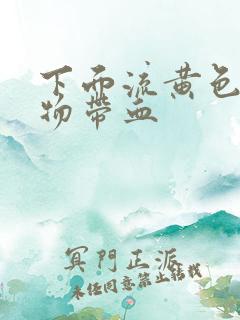 下面流黄色
物帶血
冥門正派
未经同意禁止转载